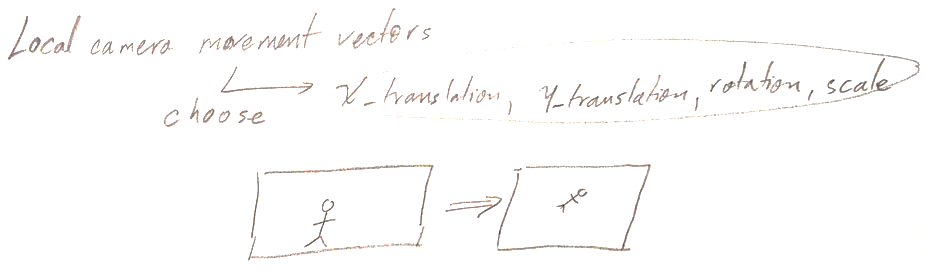 Local camera movement vectors
choose → X-translation, Y-translation, rotation, scale